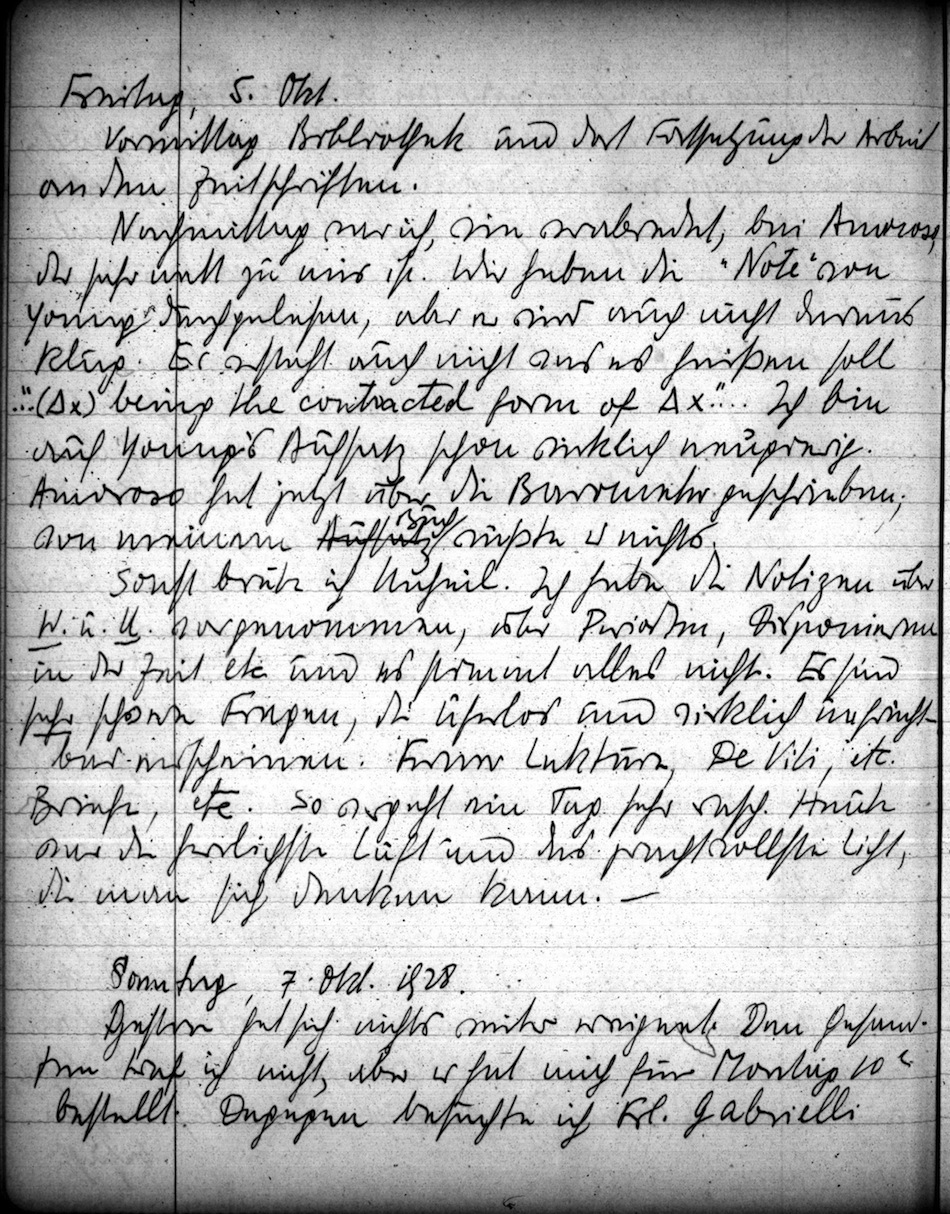 Freitag, 5. Okt.
Vormittag Bibliothek und dort Fortsetzung der Arbeit
an den Zeitschriften.
Nachmittag war ich, wie verabredet, bei Amoroso,
der sehr nett zu mir ist. Wir haben die "Note" von
Young durchgelesen, aber er wird auch nicht daraus
klug. Er versteht auch nicht was es heißen soll
"...(Δx) being the contracted form of Δx"... Ich bin
auf Young's Aufsatz schon wirklich neugierig.
Amoroso hat jetzt über die Barometer geschrieben;
von meinem Aufsatz Buch wußte er nichts.
Sonst brüte ich Unheil. Ich habe die Notizen über
W. u. U. vorgenommen, über Perioden, Disponieren
in der Zeit etc und es stimmt alles nicht. Es sind
sehr schwere Fragen, die uferlos und wirklich unfrucht-
bar erscheinen. Ferner Lektüre, De Viti, etc.
Briefe, etc. So vergeht ein Tag sehr rasch. Heute
war die herrlichste Luft und das prachtvollste Licht,
die man sich denken kann. —
Sonntag, 7. Okt. 1928.
Gestern hat sich nichts weiter ereignet. Den Gesand-
ten traf ich nicht, aber er hat mich für Montag 10
bestellt. Dagegen besuchte ich Frl. Gabrielli